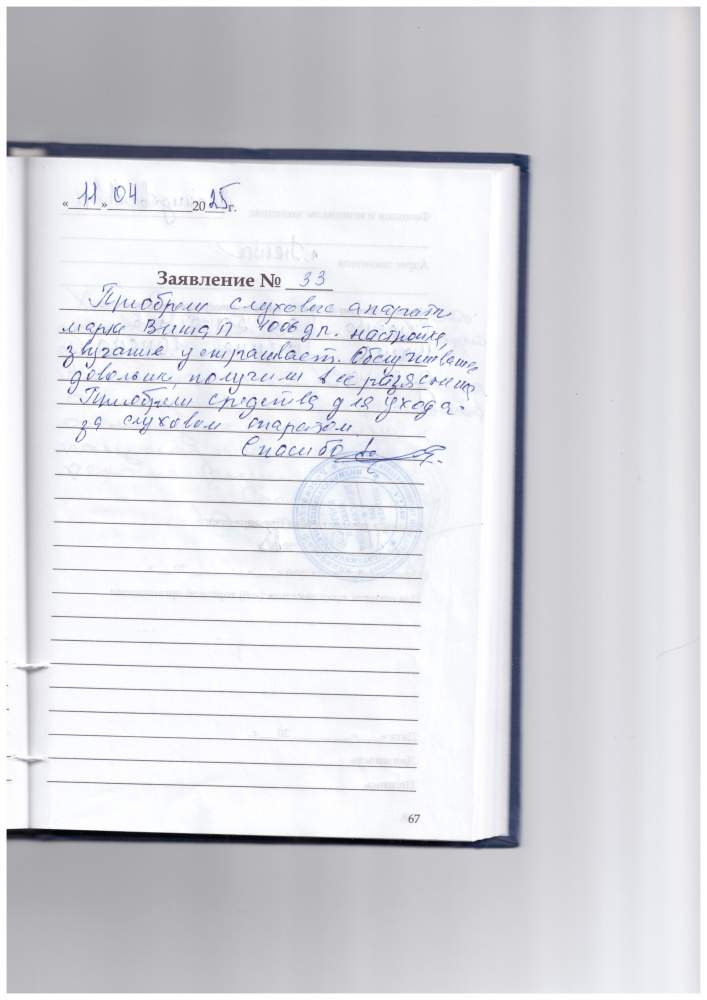 «11» 04 2025 г.
Заявление № 33
Приобрели слуховые апараты
марки 4006 дп. настройка,
звучание устраивает. Обслуживание
довольны, получили все
Приобрели средства для ухода
за слуховом апаратом.
Спасибо
67